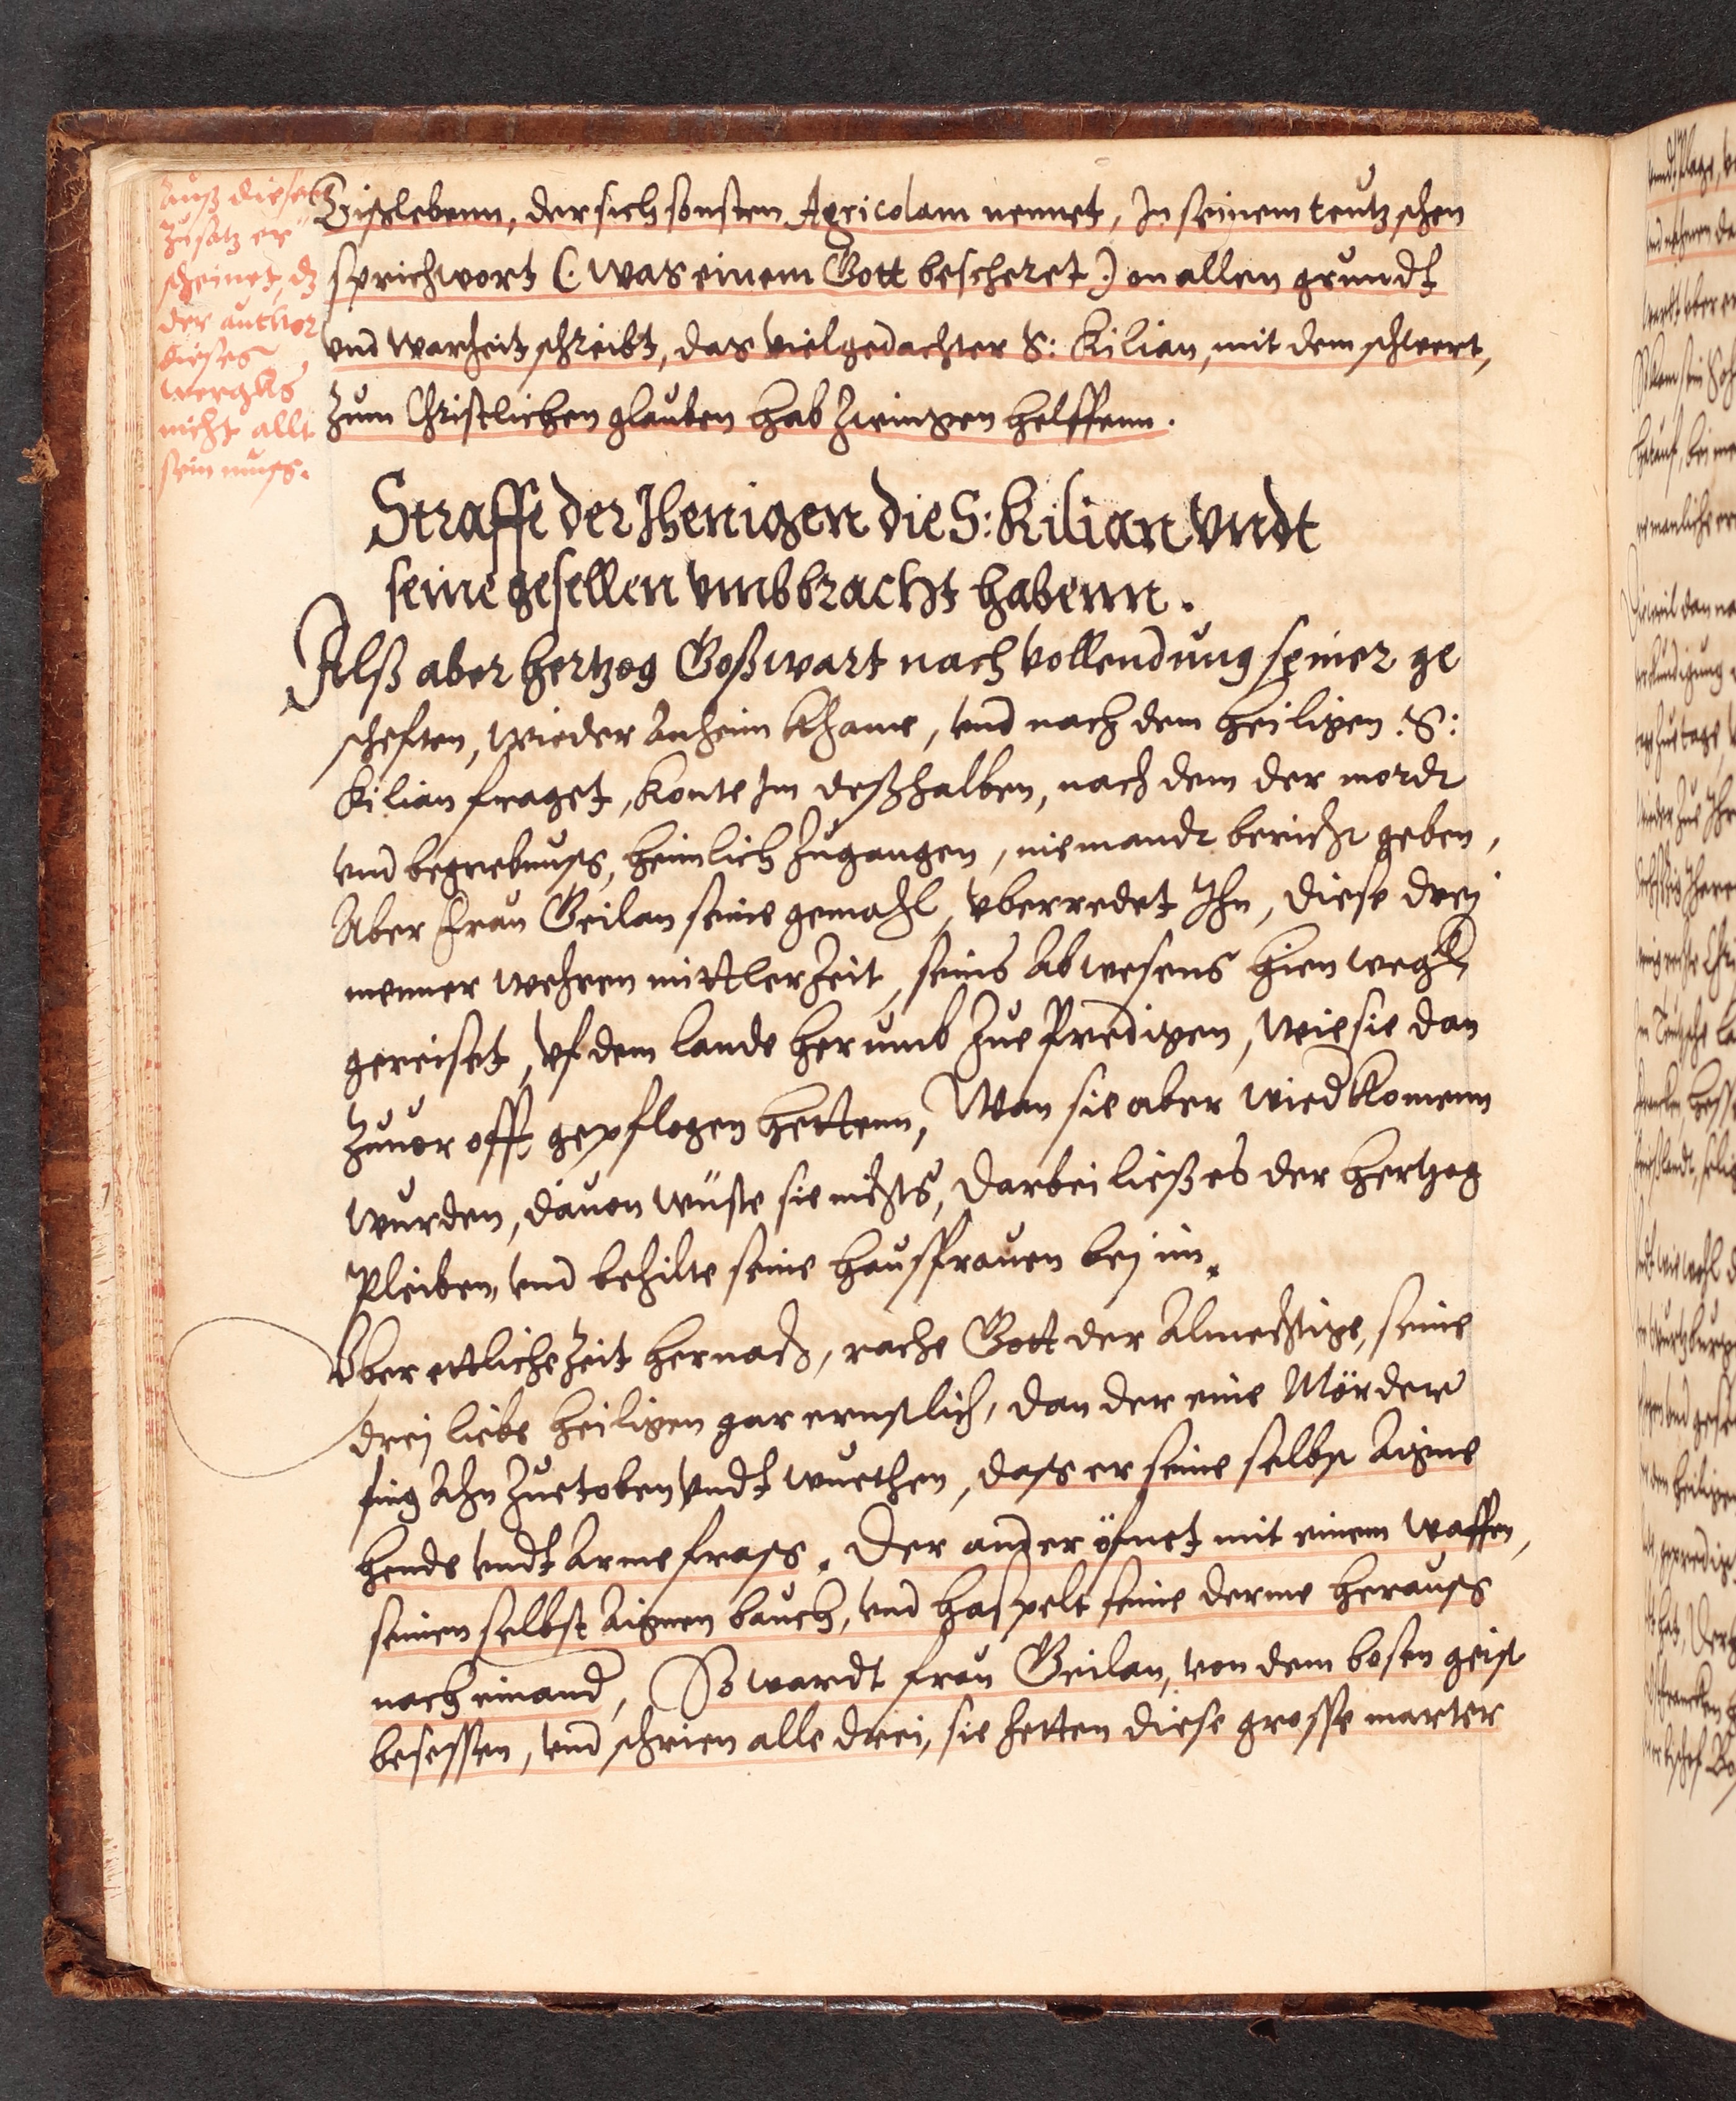 Auß diesem
Zusatz er
scheinet, dz
der author
dieses
wergks
nicht allt
sein muss.
Eißlebenn, der sich sonsten Agricolam nennet, In seinem teutzschen
sprichwort (: was einem Gott bescheret :) on allen grundt
vnd warheit schreibt, das vielgedachter S: Kilian, mit dem schwert,
zum Christlichen glauben hab zwingen helffenn.
Straffe der Jhenigen die S: Kilian vndt
seine gesellen vmbbracht habenn.
Alß aber hertzog Goßwart nach vollendung seiner ge
scheften, wieder anheim khame, vnd nach dem heiligen S:
Kilian fraget, konte Im deßhalben, nach dem der mordt
vnd begrebnuss, heimlich zugangen, niemandt bericht geben,
Aber frau Geilan seine gemahl, vberredet Ihn, diese drej
menner wehren mittlerzeit, seins abwesens hien wegk
gereiset, vf dem lande herumb zue Predigen, wie sie dan
zuuor offt gepflogen hettenn, Wan sie aber wied komenn
wurden, dauon wüste sie nichts, darbei ließ es der hertzog
Pleiben, vnd behilte seine haussfrauen bej im.
Vber ettliche zeit hernach, rache Gott der Almechtige, seine
drej liebe heiligen gar ernstlich, dan der eine Mörder
fing ahn zue toben vndt wuethen, dass er seine selbst aigne
hende vndt arme frass. Der ander öfnet mit einem waffen,
seinen selbst aignen bauch, vnd haspelt seine derme herauss
nach einand, So wardt frau Geilan, von dem bosen geist
besessen, vnd schrien alle drei, sie hetten diese grosse marter